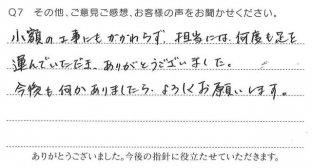 Q7 その他、ご意見ご感想、お客様の声をお聞かせください。
小額の工事にもかかわらず、担当には、何度も足を
運んでいただき、ありがとうございました。
今後も何かありましたら、よろしくお願いします。
ありがとうございました。今後の指針に役立たせていただきます。